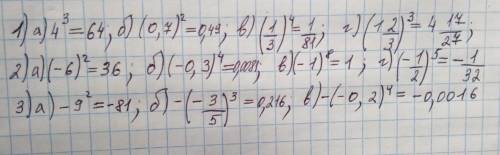 1) а) 4³=64, б) (0,7)²=0,49, в) (1/3)⁴=1/81; г) (1 2/3)³=4 17/27;
2) а) (-6)²=36; б) (-0,3)⁴=0,0081, в) (-1)⁸=1; г) (-1/2)⁵=-1/32
3) а) -9²=-81; б) -(-3/5)³=0,216, в) -(-0,2)⁴=-0,0016